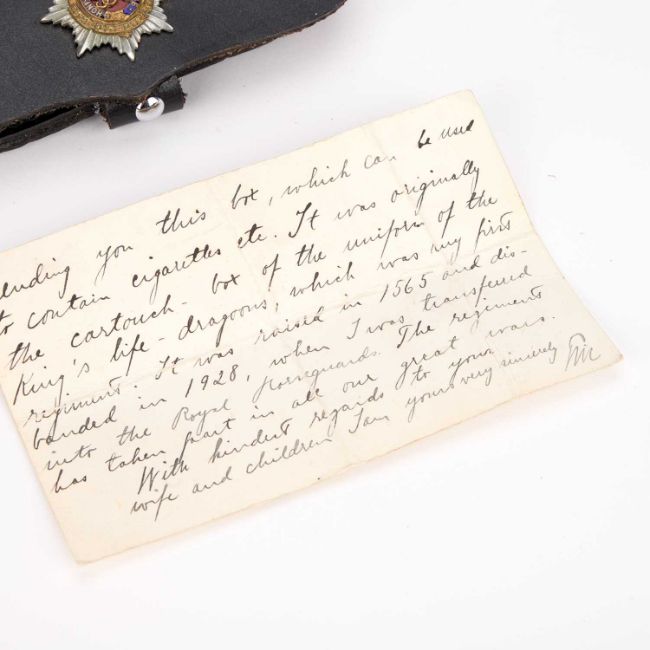 sending you this box, which can be used
to contain cigarettes etc. It was originally
the cartouch-box of the uniform of the
King's life-dragoons, which was my first
regiment. It was raised in 1565 and dis-
banded in 1928, when I was transferred
into the Royal Horseguards. The regiment
has taken part in all our great wars.
With kindest regards to your
wife and children I am yours very sincerely